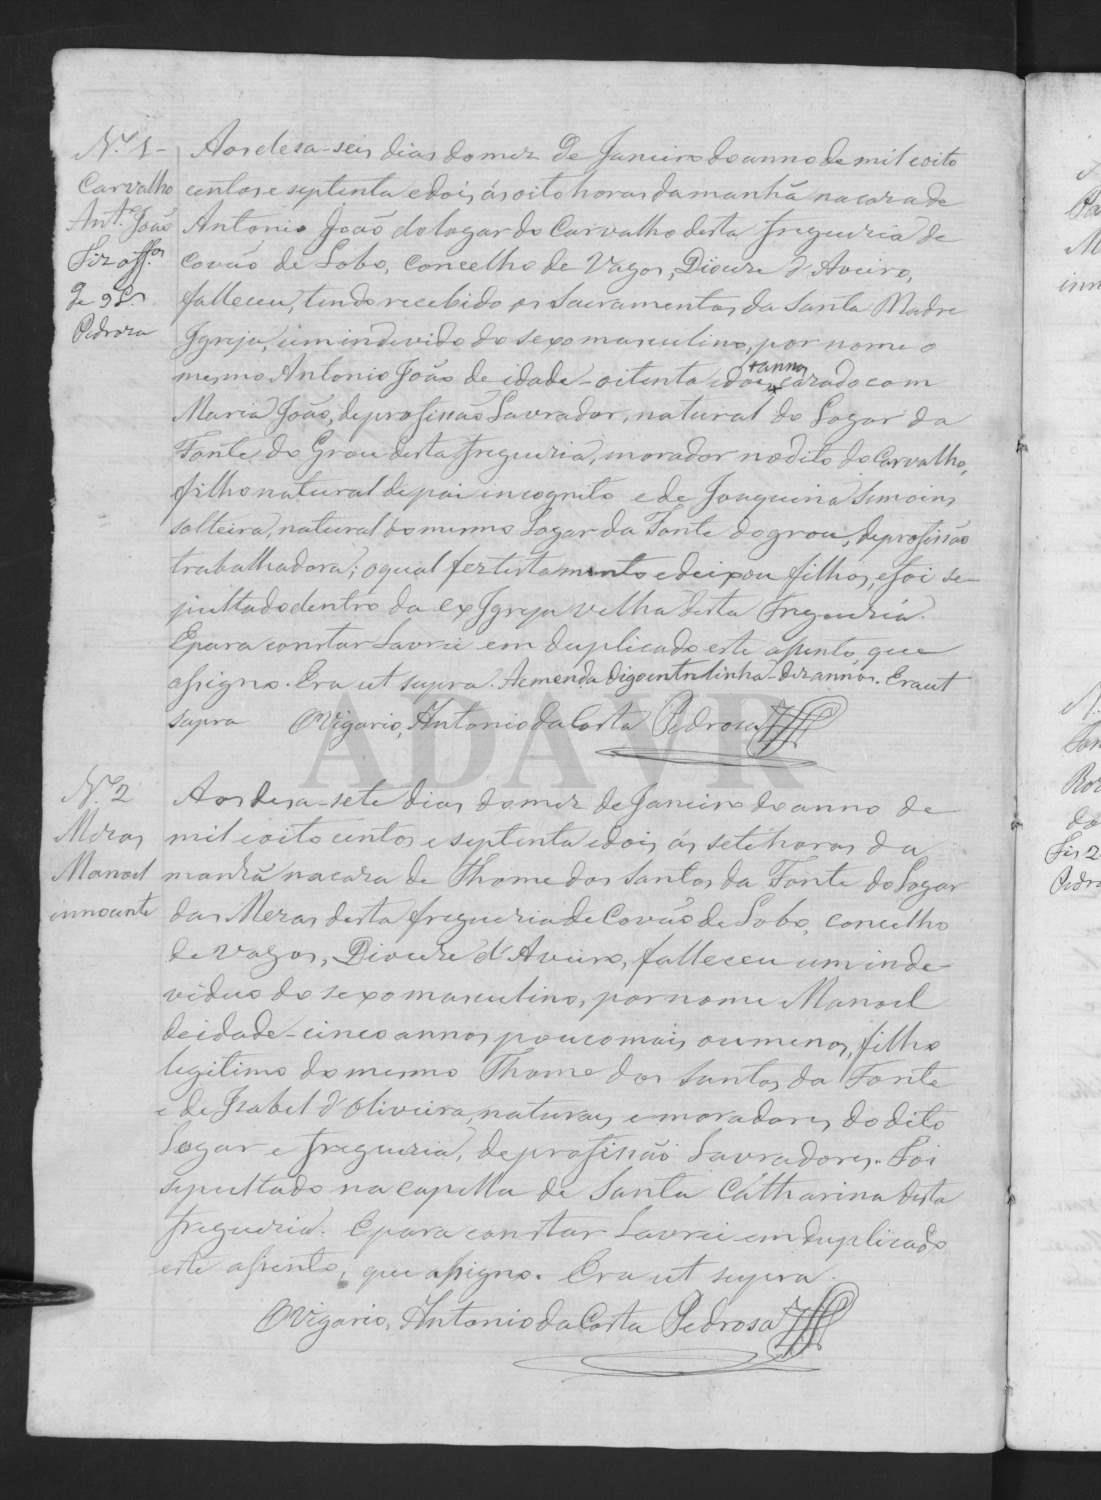 N.º 1-
Carvalho
Ant.º João
Fiz off.os
de 9 L.
Pedroza
Aos desa-seis dias do mez de Janeiro do anno de mil e oito
centos e septenta e dois, ás oito horas da manhã na caza de
Antonio João do logar do Carvalho desta freguezia de
Covão de Lobo, concelho de Vagos, Dioceze d'Aveiro,
falleceu, tendo recebido os Sacramentos da Santa Madre
Igreja, um individo do sexo masculino, por nome o
mesmo Antonio João de idade - oitenta e dois + annos cazado com
Maria João, de profissão Lavrador, natural do Logar da
Fonte do Grou desta freguezia, morador no dito do Carvalho,
filho natural de pai incognito e de Joaquina Simoins
solteira, natural do mesmo Logar da Fonte do grou, de profissão
trabalhadora; o qual fez testamento e deixou filhos, e foi se-
pultado dentro da ex Igreja velha desta Freguezia.
E para constar Lavrei em duplicado este assento que
assigno. Era ut supra. A emenda digo entrelinha - diz annos. Era ut
supra O Vigario, Antonio da Costa Pedrosa
N.º 2
Mezas
Manoel
innocente
Aos desa-sete dias do mez de Janeiro do anno de
mil e oito centos e septenta e dois ás sete horas da
manhã na caza de Thome dos Santos da Fonte do Logar
das Mezas desta freguezia de Covão de Lobo, concelho
de Vagos, Dioceze d'Aveiro, falleceu um inde
viduo do sexo masculino, por nome Manoel
de idade - cinco annos pouco mais ou menos, filho
legitimo do mesmo Thome dos Santos da Fonte
e de Izabel d'Oliveira, naturaes e moradores do dito
Logar e freguezia, de profissão Lavradores. Foi
sepultado na capella de Santa Catharina desta
freguezia. E para constar Lavrei em duplicado
este assento, que assigno. Era ut supra.
O Vigario, Antonio da Costa Pedrosa
ADAVR